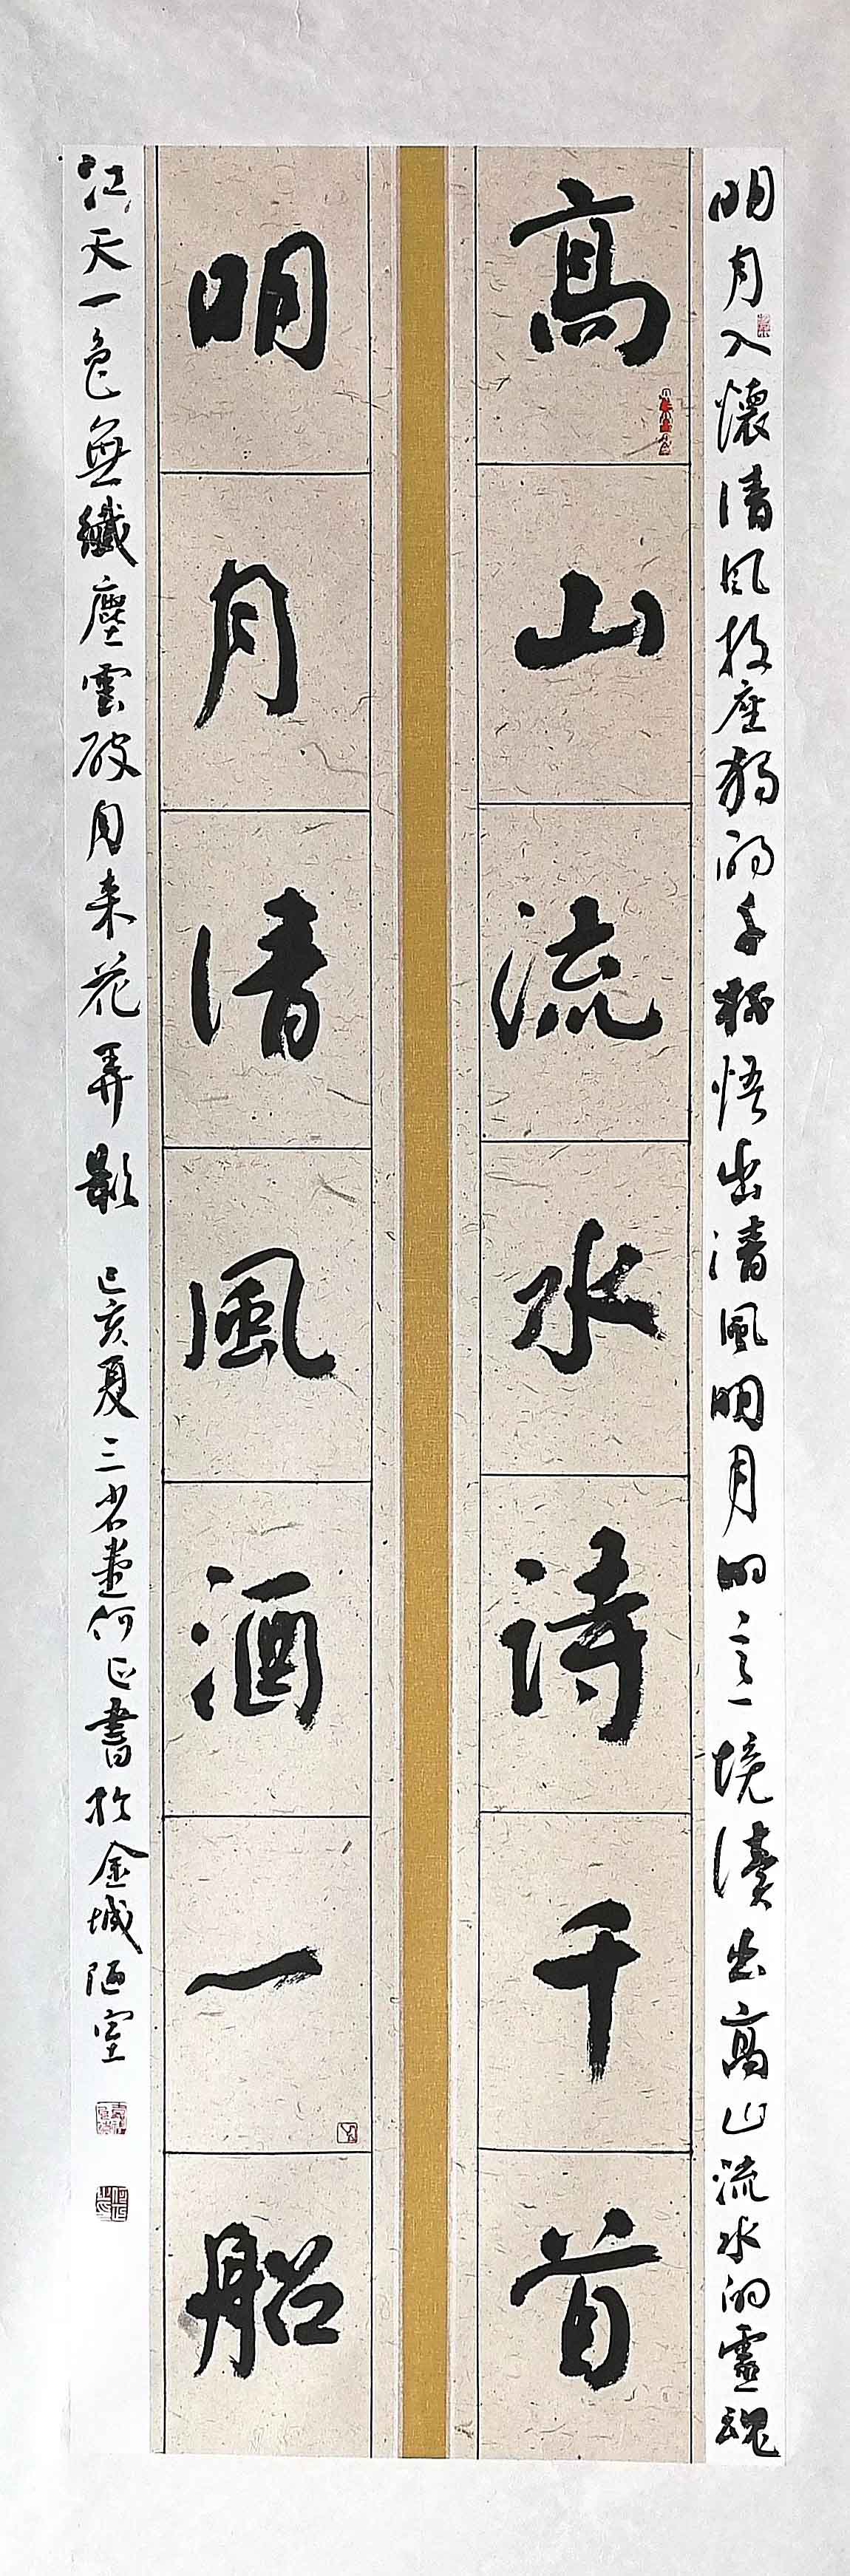 明月入懷清風投座獨的手杯悟出清風明月的意境讀出高山流水的靈魂
高山流水詩千首
明月清風酒一船
江天一色無纖塵雲破月來花弄影 己亥夏三省堂何正書於金城陋室